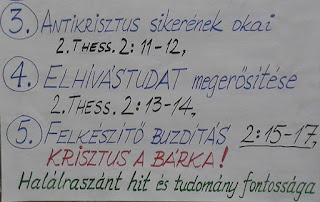 3. ANTIKRISZTUS sikerének okai
2. THESS. 2: 11-12,
4. ELHÍVÁSTUDAT megerősítése
2. THESS. 2: 13-14,
5. FELKÉSZÍTŐ BUZDÍTÁS 2:15-17,
KRISZTUS A BÁRKA!
Halálraszánt hit és tudomány fontossága